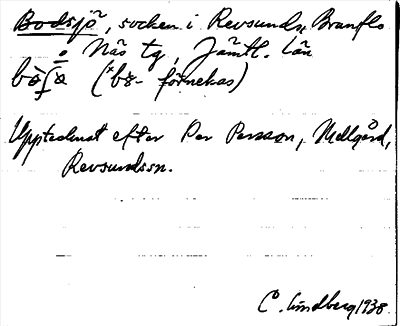 Bodsjö, socken i Revsunds, Brunflo
o. Näs tg, Jämtl. län
(*bø- förnekas)
Upptecknat efter Per Persson, Mellgård,
Revsundssn.
C. Lindberg 1938.